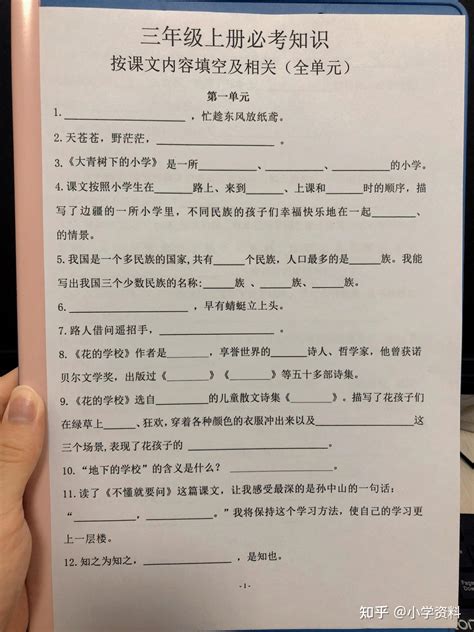 三年级上册必考知识
按课文内容填空及相关（全单元）
第一单元
1.____________________，忙趁东风放纸鸢。
2. 天苍苍，野茫茫，____________________。
3.《大青树下的小学》 是一所________、________、________的小学。
4. 课文按照小学生在______路上、来到______、上课和______时的顺序，描
写了边疆的一所小学里，不同民族的孩子们幸福快乐地在一起________
的情景。
5. 我国是一个多民族的国家,共有______个民族，人口最多的是______族。我能
写出我国三个少数民族的名称:______族 、______族、______族。
6. ____________________，早有蜻蜓立上头。
7. 路人借问遥招手，____________________。
8. 《花的学校》作者是________，享誉世界的________诗人、哲学家，他曾获诺
贝尔文学奖，出版过《________》《________》等五十多部诗集。
9. 《花的学校》选自__________的儿童散文诗集《________》。描写了花孩子们
在绿草上________、狂欢，穿着各种颜色的衣服冲出来以及________________这
三个场景,表现了花孩子的____________________。
10. “地下的学校”的含义是什么？____________________。
11. 读了《不懂就要问》这篇课文，让我感受最深的是孙中山的一句话：
“____________，____________。”我将保持这个学习方法，使自己的学习更
上一层楼。
12. 知之为知之，____________________，是知也。
- 1 -
知乎 @小学资料